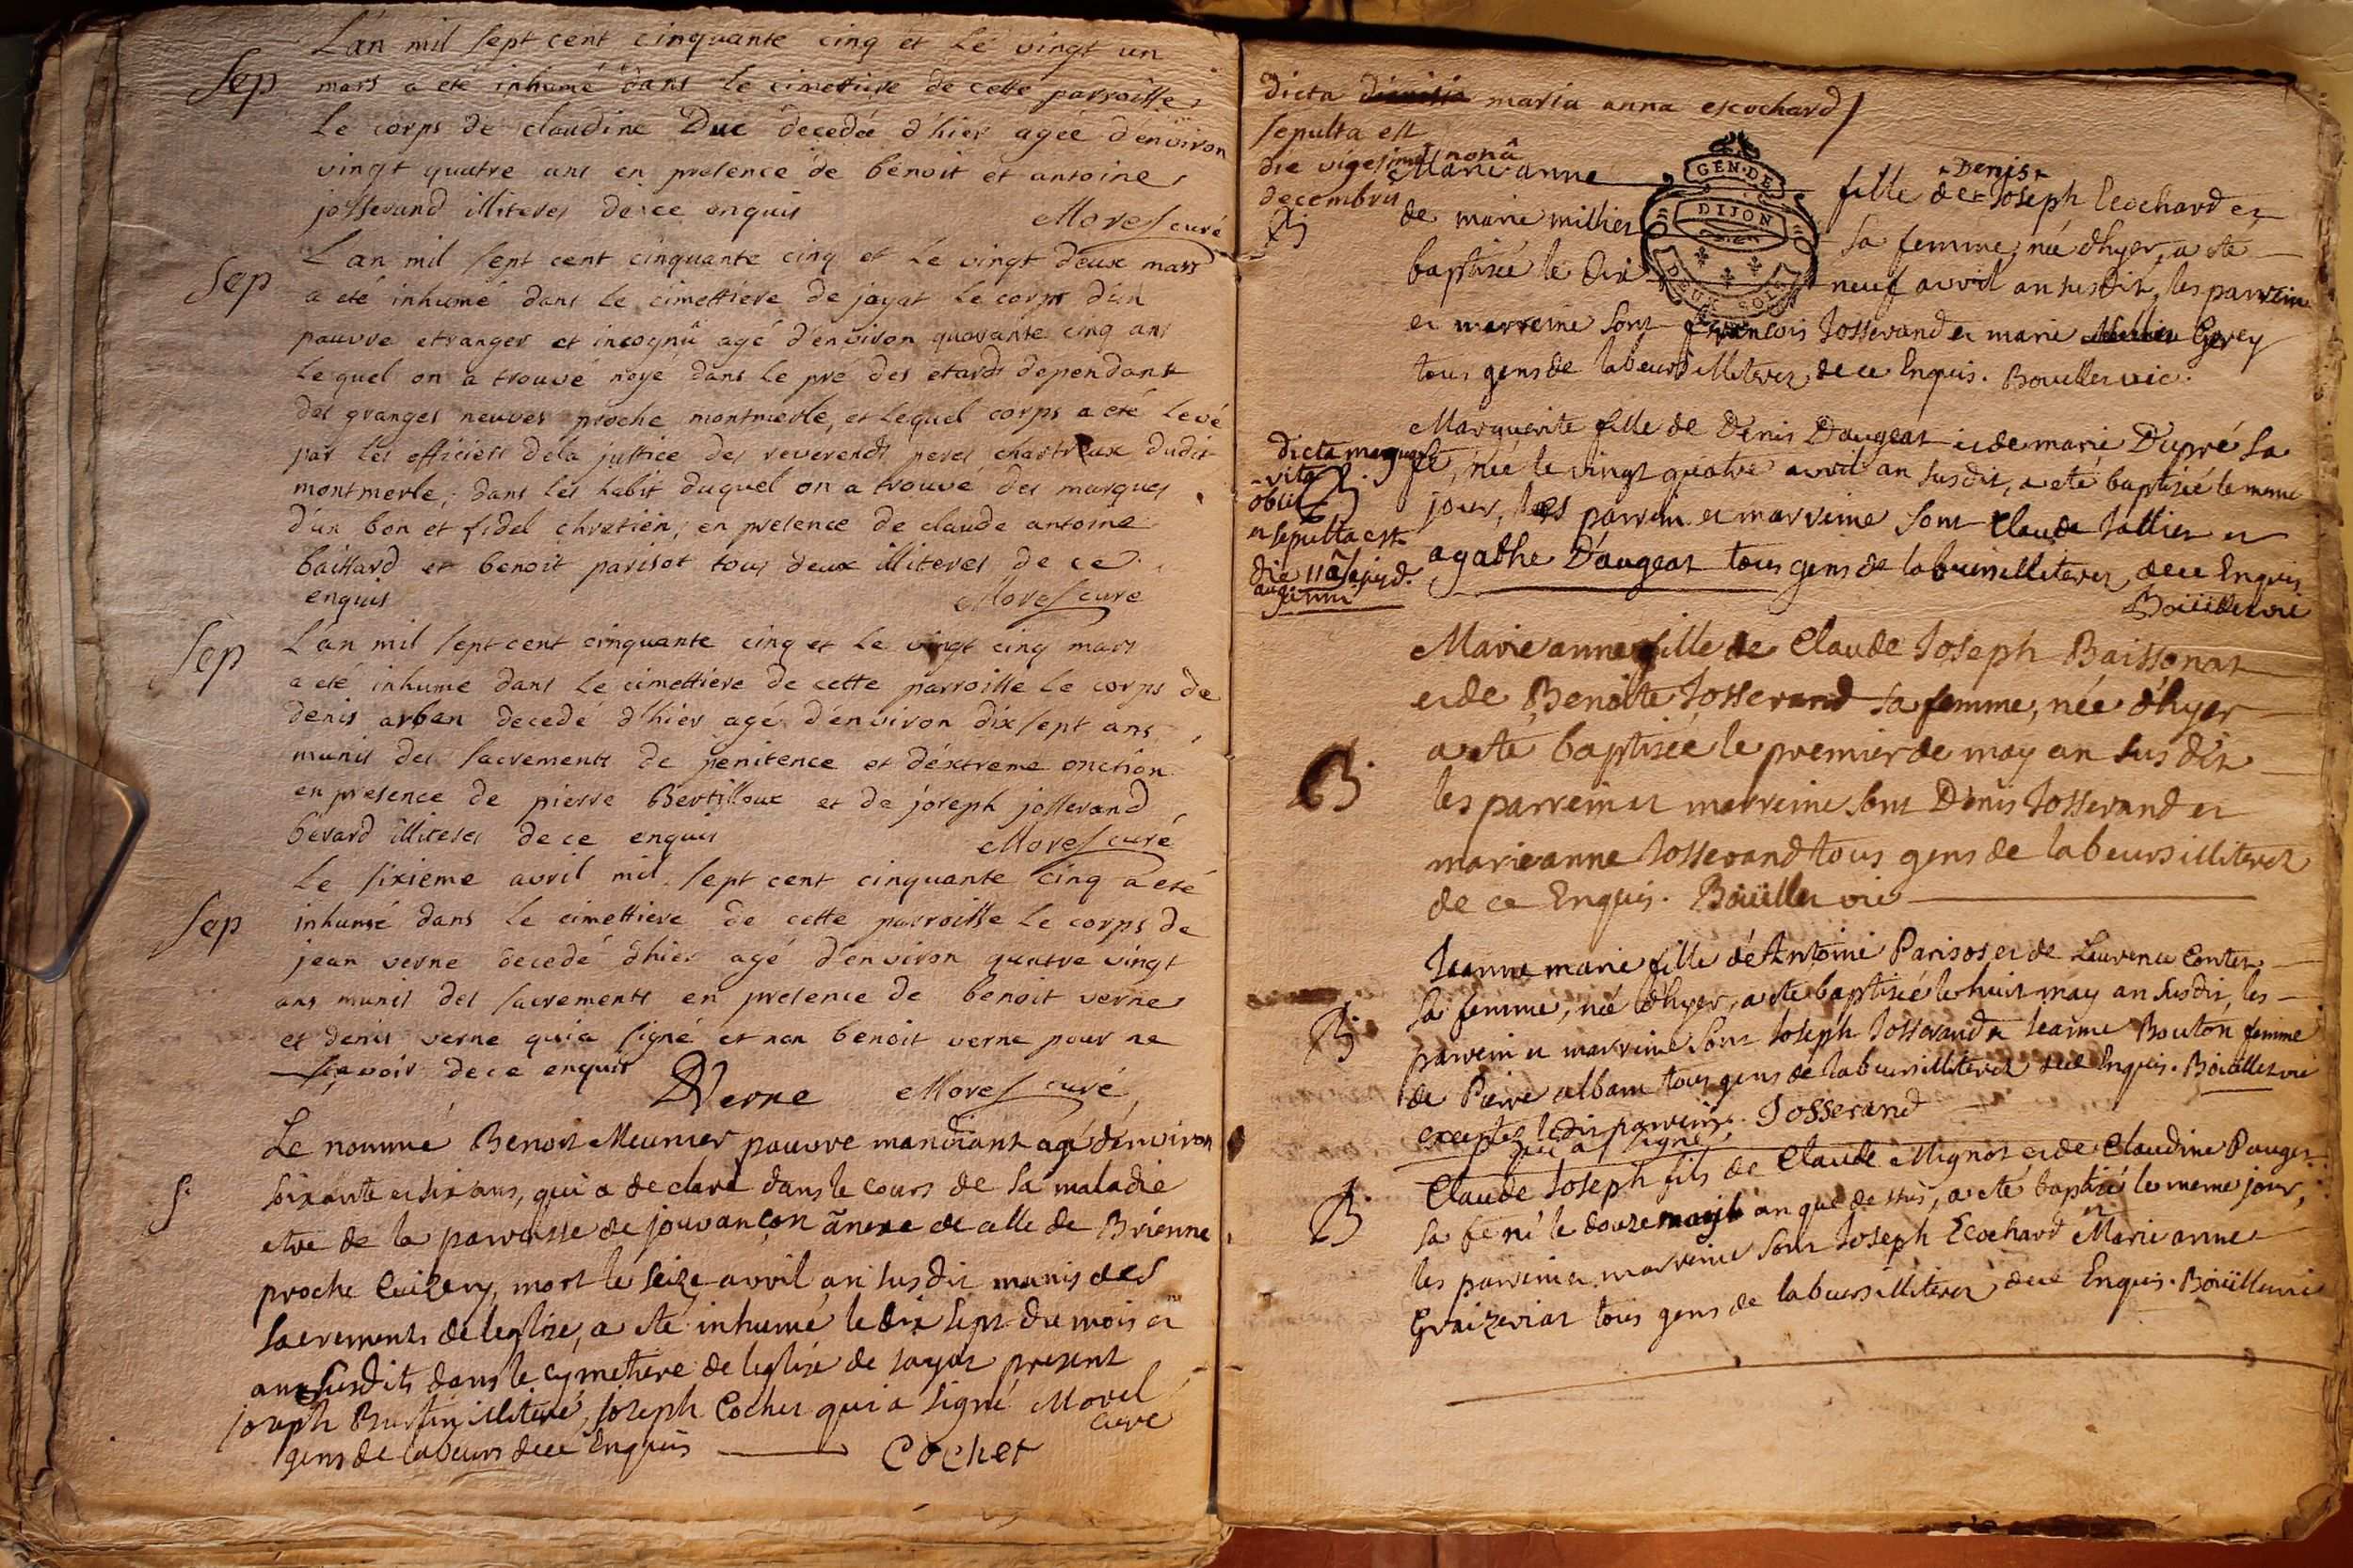 L'an mil sept cent cinquante cinq et le vingt un
Sep mars a eté inhumé dans le cimettiere de cette parroisse
le corps de claudine Duc decedée d'hier agée d'environ
vingt quatre ans en presence de benoit et antoine
josserand illiteres de ce enquis
Morel curé
L'an mil sept cent cinquante cinq et le vingt deux mars
Sep a eté inhumé dans le cimettiere de jayat le corps d'un
pauvre etranger et incognû agé d'environ quarante cinq ans
lequel on a trouvé noye dans le pré des etards dependant
des granges neuves proche montmerle, et lequel corps a eté levé
par les officiers de la justice des reverends peres chartreux dudit
montmerle, dans les habit duquel on a trouvé des marques
d'un bon et fidel chretien, en presence de claude antoine
baillard et benoit parisot tous deux illiteres de ce
enquis
Morel curé
Sep L'an mil sept cent cinquante cinq et le vingt cinq mars
a eté inhumé dans le cimettiere de cette parroisse le corps de
denis arban decedé d'hier agé d'environ dix sept ans
munis des sacrements de penitence et d'extreme onction
en presence de pierre Bertilloux et de joseph josserand
berard illiteres de ce enquis
Morel curé
Le sixieme avril mil sept cent cinquante cinq a eté
Sep inhumé dans le cimettiere de cette parroisse le corps de
jean verne decedé d'hier agé d'environ quatre vingt
ans munis des sacrements en presence de benoit verne
et denis verne qui a signé et non benoit verne pour ne
sçavoir de ce enquis
DVerne Morel curé
Le nommé Benoit Meunier pauvre mandiant agé d'environ
S. soixante et six ans, qui a declaré dans le cours de sa maladie
etre de la parroisse de jouvançon ânexe de celle de Brienne
proche Cuizery, mort le seize avril an susdit munis des
sacrements de leglise, a eté inhumé le dix sept du mois et
an susdits dans le cymetiere de leglise de Jayat present
joseph Burtin illiteré, joseph Cochet qui a signé Morel
curé
gens de labeurs de ce Enquis
Cochet
dicta maria anna escochard
sepulta est
die vigesima nonâ
decembris
B
Marie anne fille de Denis Joseph Ecochard et
GEN. DE
DIJON
DEUX SOLS
de marie millier sa femme, née d'hyer, a eté
baptisée le dix neuf avril an susdit, les parrein
et marreine sont francois Josserand et marie Gerey
tous gens de labeurs illiterez de ce Enquis. Bouiller vic.
Marguerite fille de Denis Daugeat et de marie Dupré sa
fe, née le vingt quatre avril an susdit, a eté baptisée le meme
jour, les parrein et marreine sont Claude Jallier et
agathe Daugeat tous gens de labeurs illiterez de ce Enquis
Boüiller vic
dicta margua
-rita
obiit B.
et sepulta est
die 11â
Marie anne fille de Claude Joseph Baissonat
et de Benoite Josserand sa femme, née d'hyer
B. a eté baptisée le premier de may an susdit
les parrein et marreine sont Denis Josserand et
marie anne Josserand tous gens de labeurs illiterez
de ce Enquis. Boüiller vic
Jeanne marie fille de Antoine Parisot et de Laurence Contet
sa femme, née d'hyer, a eté baptisée le huit may an susdit, les
B. parrein et marreine sont Joseph Josserand et Jeanne Bouton femme
de Pierre alban tous gens de labeurs illiterez de ce Enquis. Boüiller vic
excepter ledit parrein qui a signé. Josserand
Claude Joseph fils de Claude Mignot et de Claudine Pauget
B. sa fe né le douze may an que dessus, a eté baptizé le meme jour,
les parrein et marreine sont Joseph Ecochard et Marie anne
Graizeriat tous gens de labeurs illiterez de ce Enquis. Boüiller vic